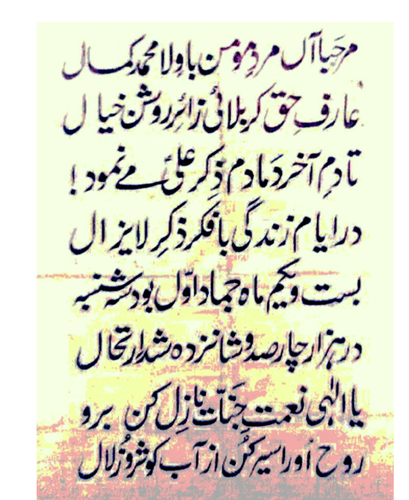 مرحبا آں مردِ مومن باولا محمد کمال
عارفِ حق کربلائی زائرِ روشن خیال
تا دمِ آخر دمادم ذکرِ علیؑ مے نمود!
در ایامِ زندگی با فکر ذکرِ لایزال
بست ویکم ماہ جمادا اوّل بود سہ شنبہ
در ہزار چار صد و شانزدہ شد ارتحال
یا الٰہی نعمتِ جنّات نازل کن برو
روح اورا سیر کُن از آب کوثر و زلال